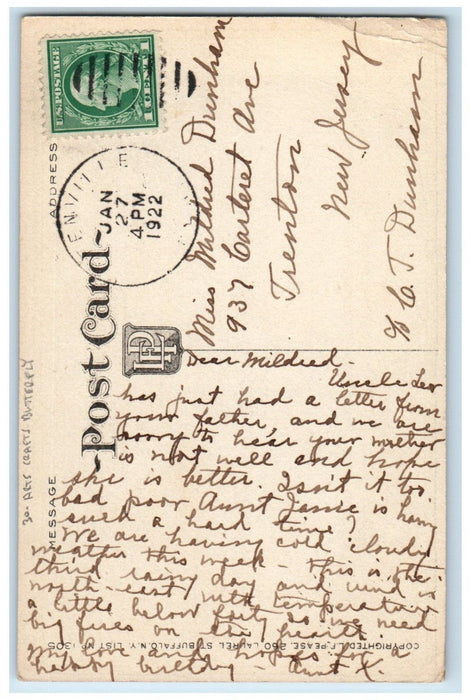 U.S. POSTAGE
1 CENT 1
ENVILLE
JAN
27
4 PM
1922
ADDRESS
Post Card
MESSAGE
30- ARTS CRAFTS BUTTERFLY
Miss Mildred Dunham
937 Carteret Ave
Trenton
New Jersey
% C. T. Dunham
Dear Mildred-
Uncle Lev
has just had a letter from
your father, and we are
sorry to hear your mother
is not well and hope
she is better. Isn't it too
bad poor Aunt Janie is having
such a hard time?
We are having cold cloudy
weather this week - This is the
third rainy day and wind is
north-east, with temperature
a little below forty so we need
big fires on the hearth.
My love and hopes for a
happy birthday - Aunt K.
COPYRIGHTED L.F. PEASE, 260 LAUREL ST. BUFFALO, N.Y. LIST No 1305